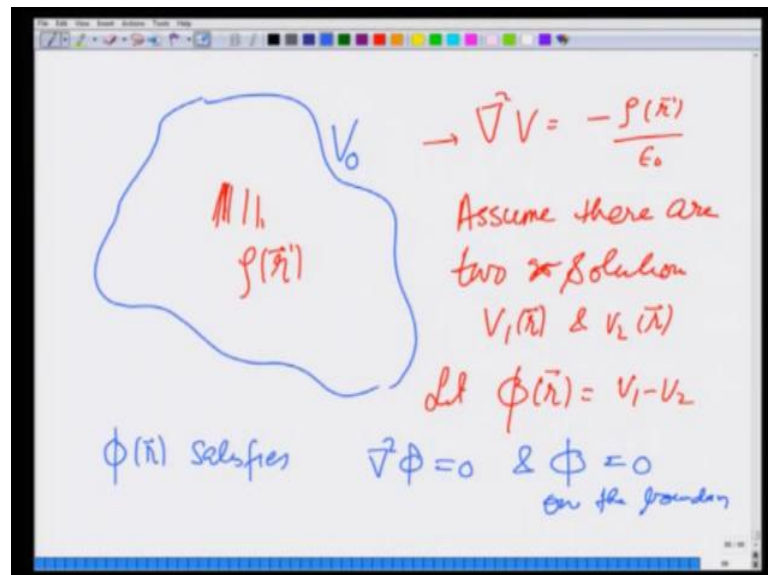 File Edit View Insert Actions Tools Help
V₀
ρ(r⃗')
→ ∇²V = -ρ(r⃗')/ε₀
Assume there are
two solution
V₁(r⃗) & V₂(r⃗)
Let ϕ(r⃗) = V₁-V₂
ϕ(r⃗) satisfies ∇²ϕ=0 & ϕ=0
on the boundary